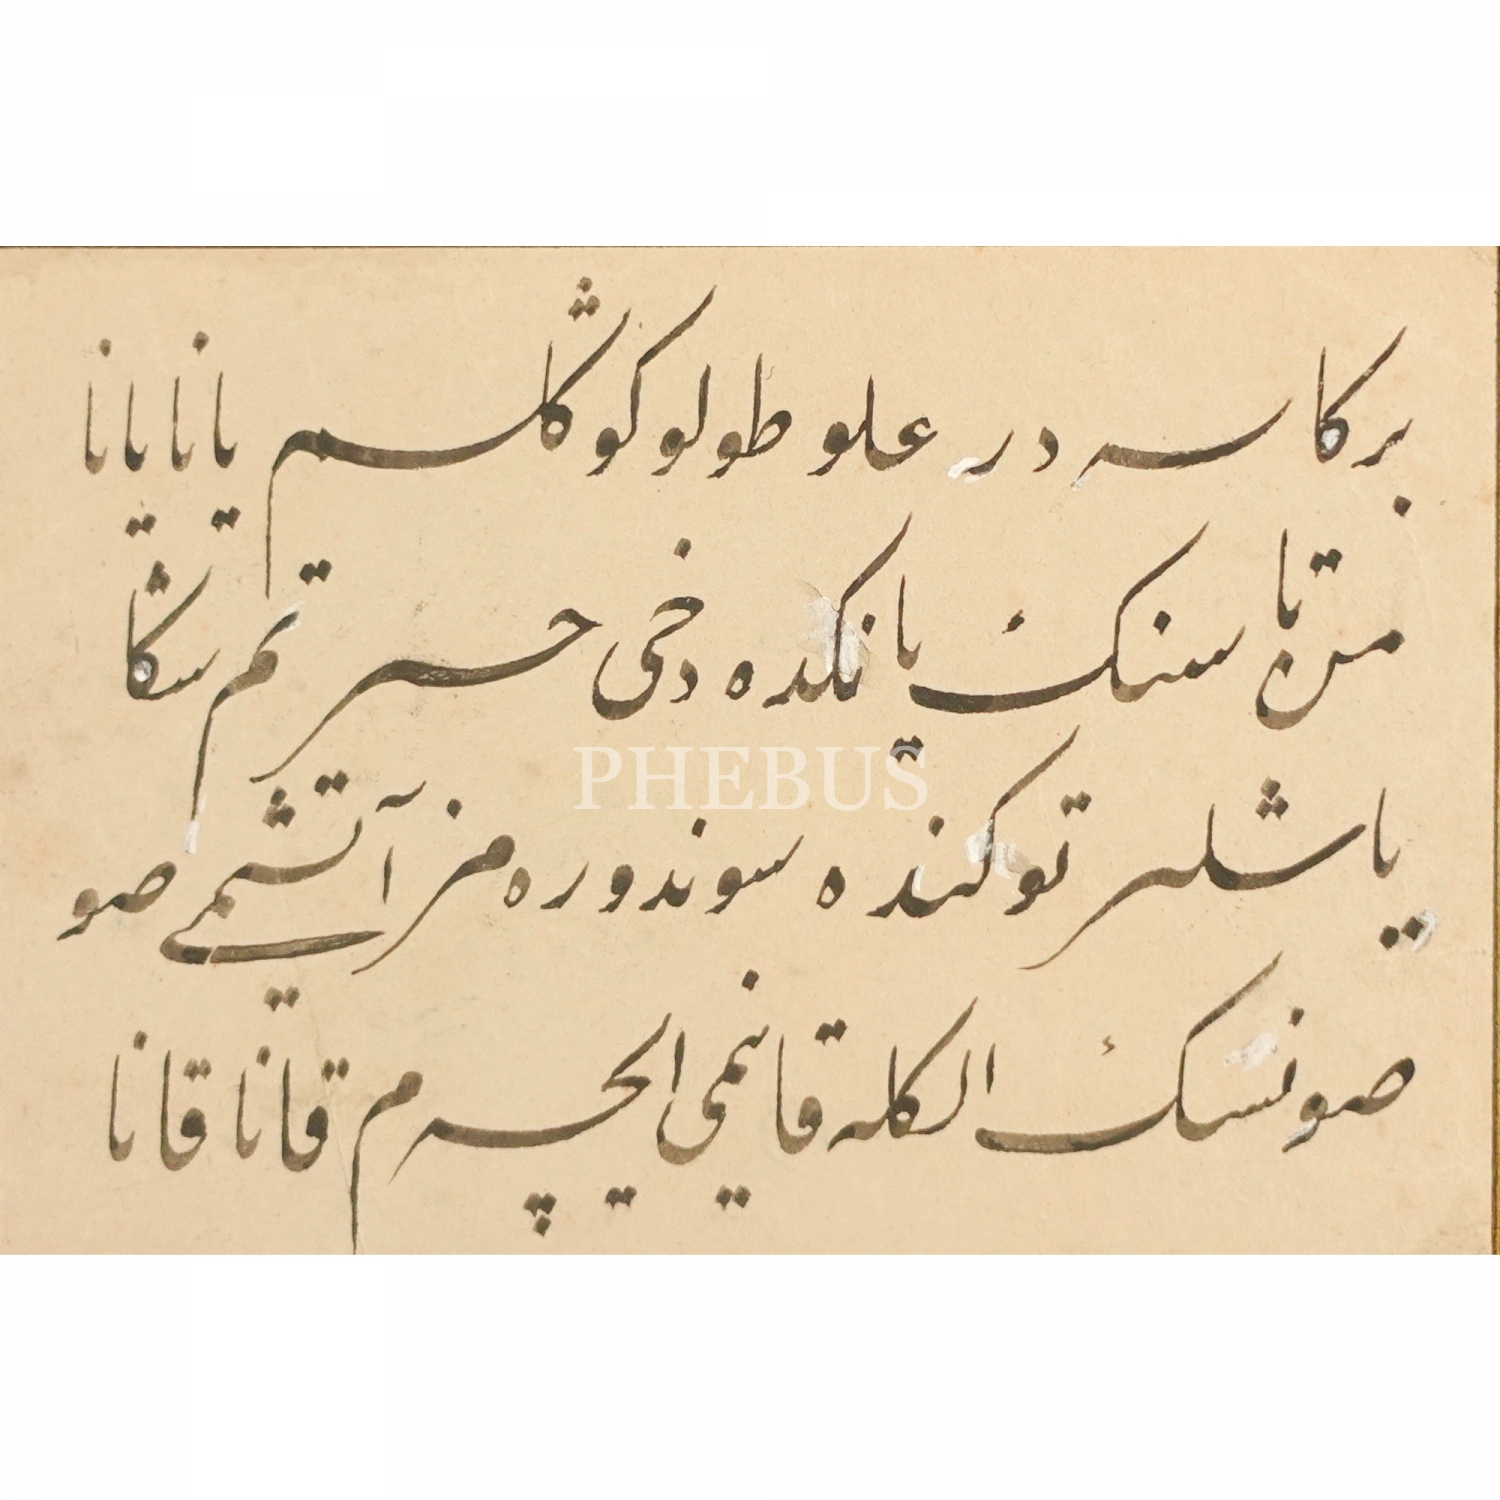 بر كاسه در علو طولو كوكلم يانا يانا
من تا سنك يانكده دخی حسرتم سكا
ياشلر توكنده سوندوره مز آتشمی صو
صونسك الكله قانیمی ایچه م قانا قانا
PHEBUS